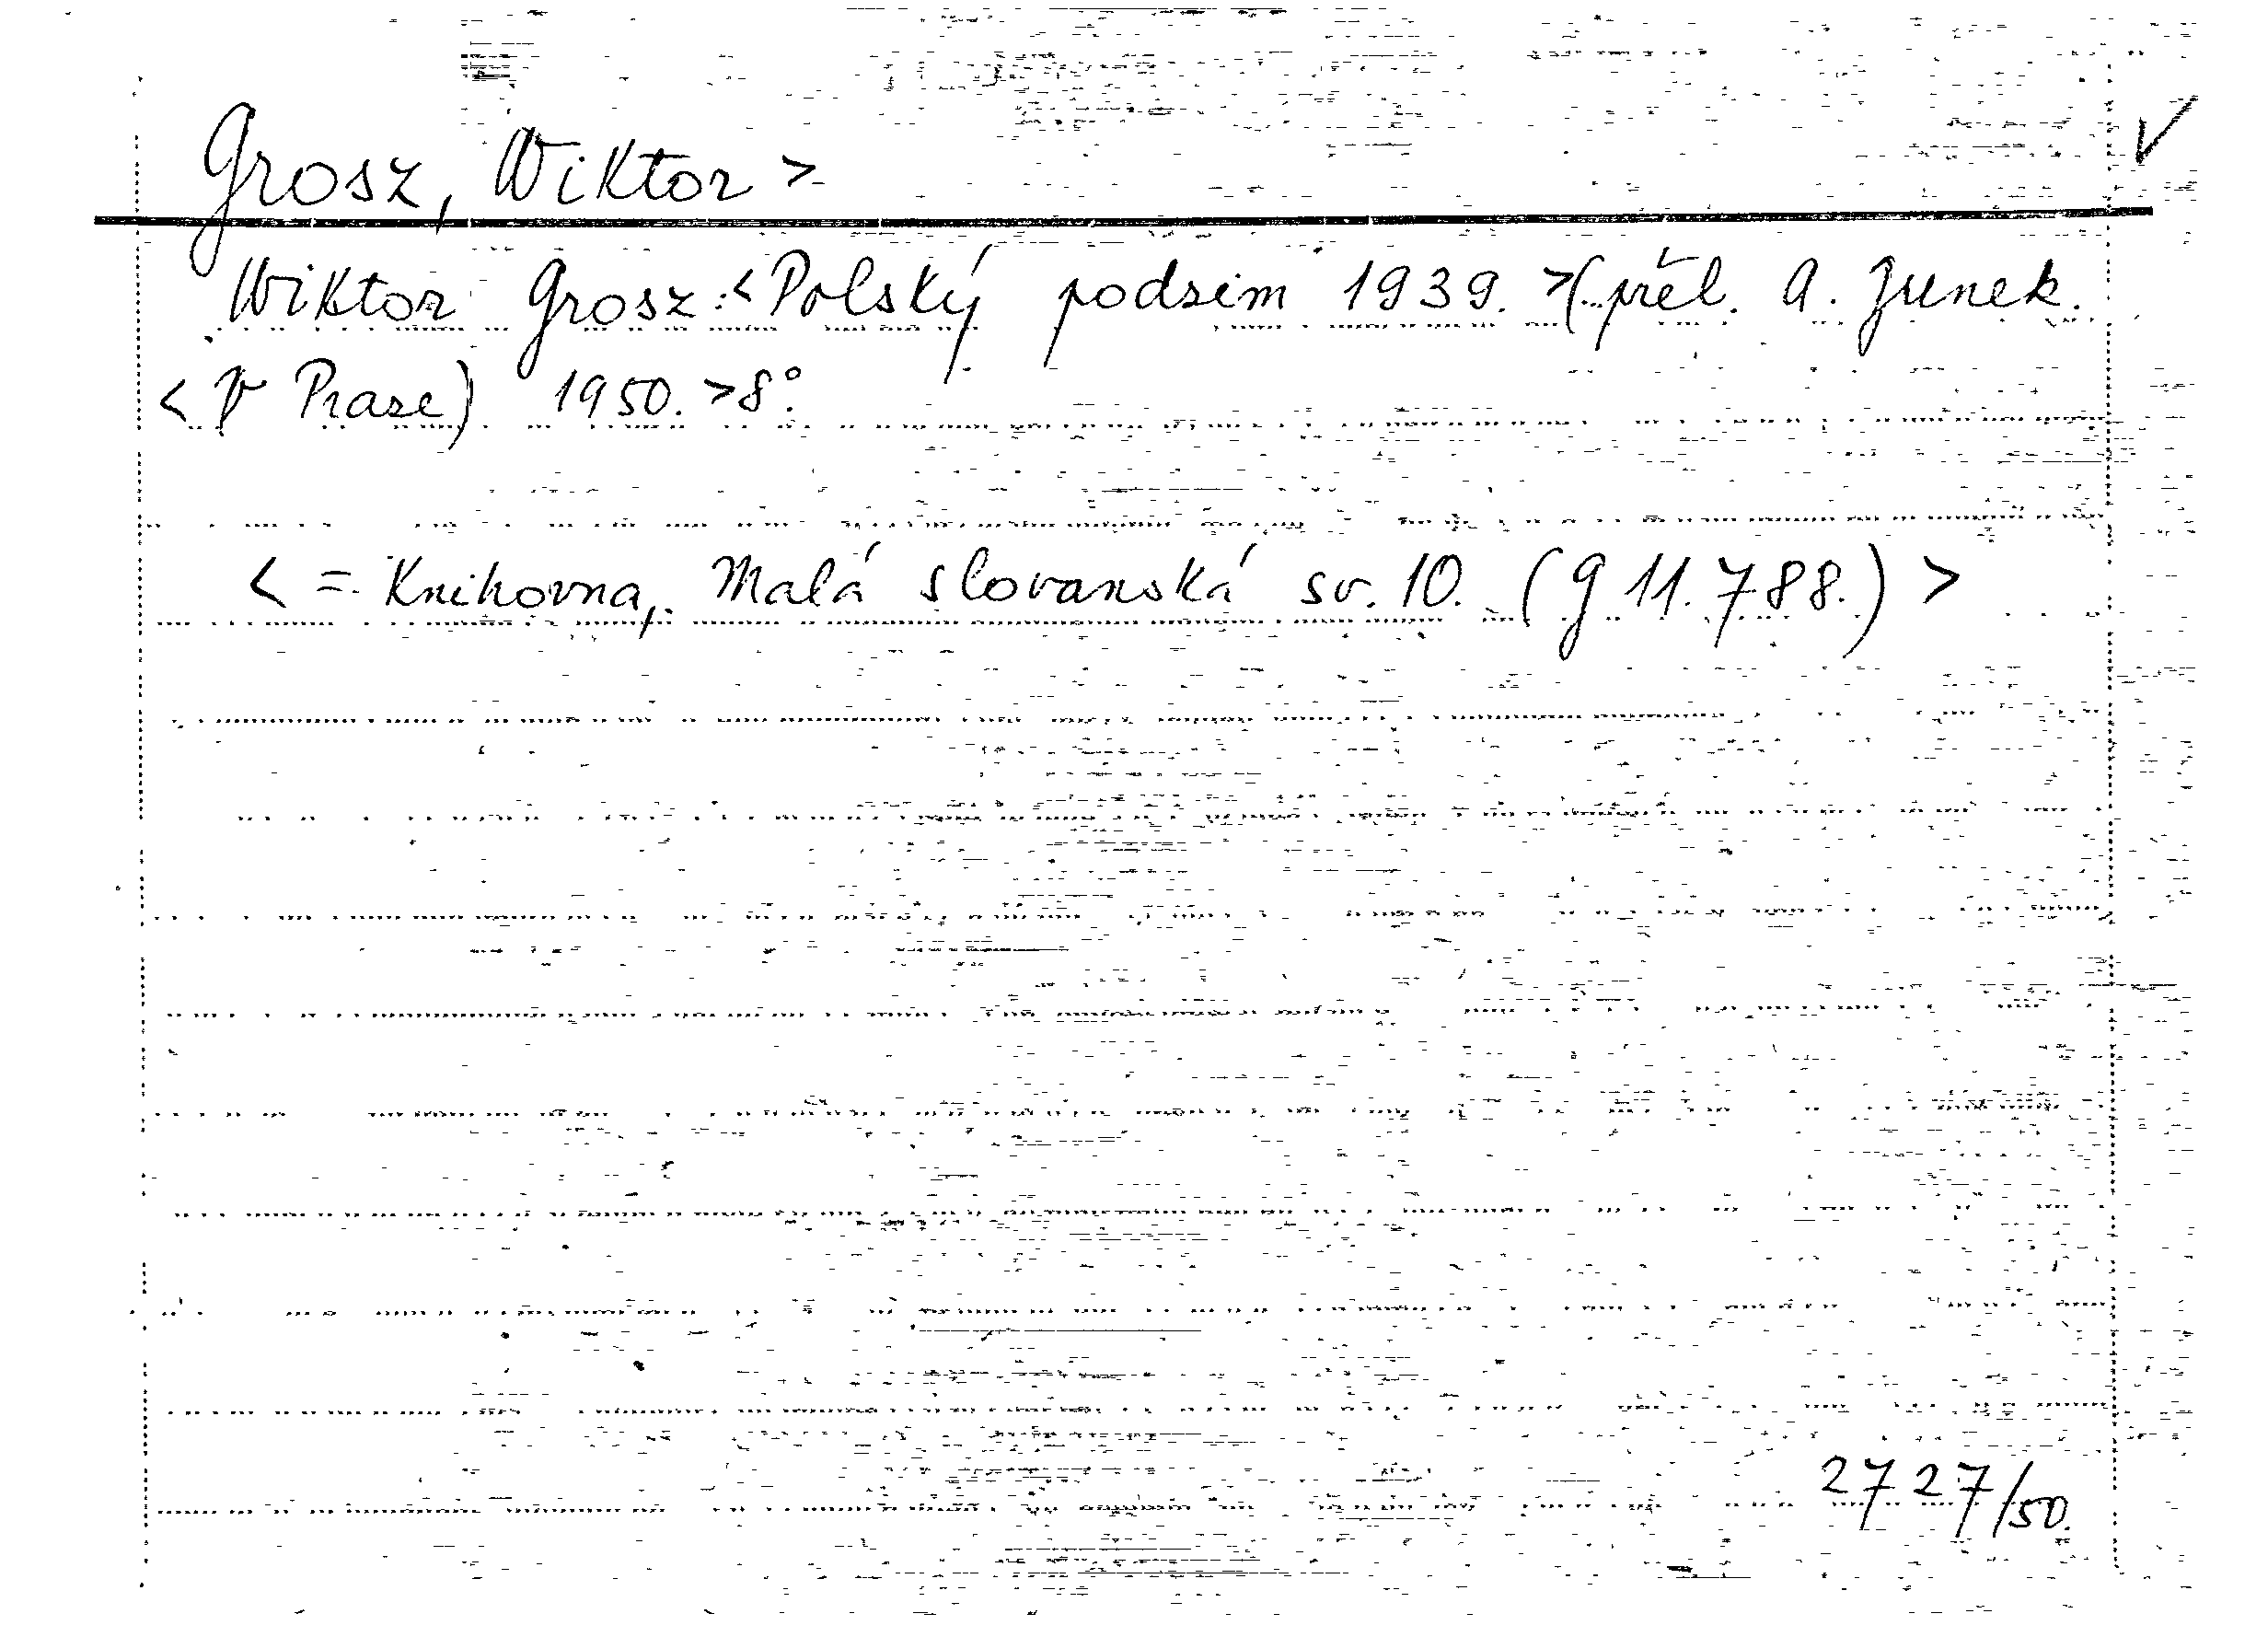 Grosz, Wiktor >
Wiktor Grosz: <Polský podzim 1939. >(přel. A. Junek.
< V Praze) 1950. >8°.
< = Knihovna, Malá slovanská sv. 10. (g 11.788.) >
2727/50.